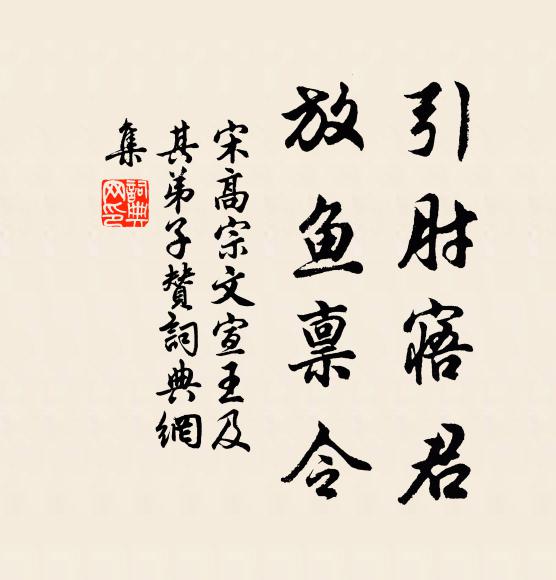 引肘寤君
放鱼禀令
宋高宗文宣王及
其弟子赞词典網
集
詞典
网印